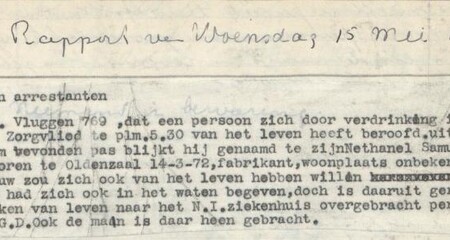 Rapport van Woensdag 15 Mei
n arrestanten
. Vluggen 769 ,dat een persoon zich door verdrinking i
Zorgvlied te plm.5.30 van het leven heeft beroofd.uit
m bevonden pas blijkt hij genaamd te zijnNethanel Samu
oren te Oldenzaal 14-3-72,fabrikant,woonplaats onbeken
uw zou zich ook van het leven hebben willen
had zich ook in het waten begeven,doch is daaruit ge
ken van leven naar het N.I.ziekenhuis overgebracht per
G.D.Ook de main is daar heen gebracht.